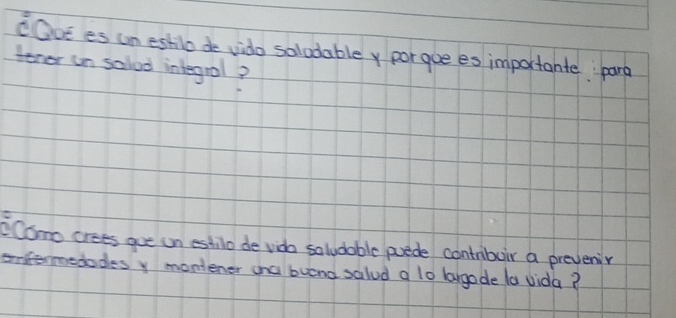 ¿Qué es un estilo de vida saludable y porque es importante para
tener un salud integral?
¿Como crees que un estilo de vida saludable puede contribuir a prevenir
enfermedades y mantener una buena salud a lo largo de la vida?